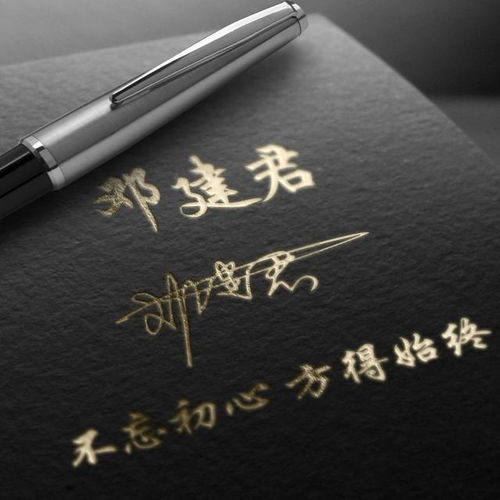 邓建君
邓建君
不忘初心 方得始终